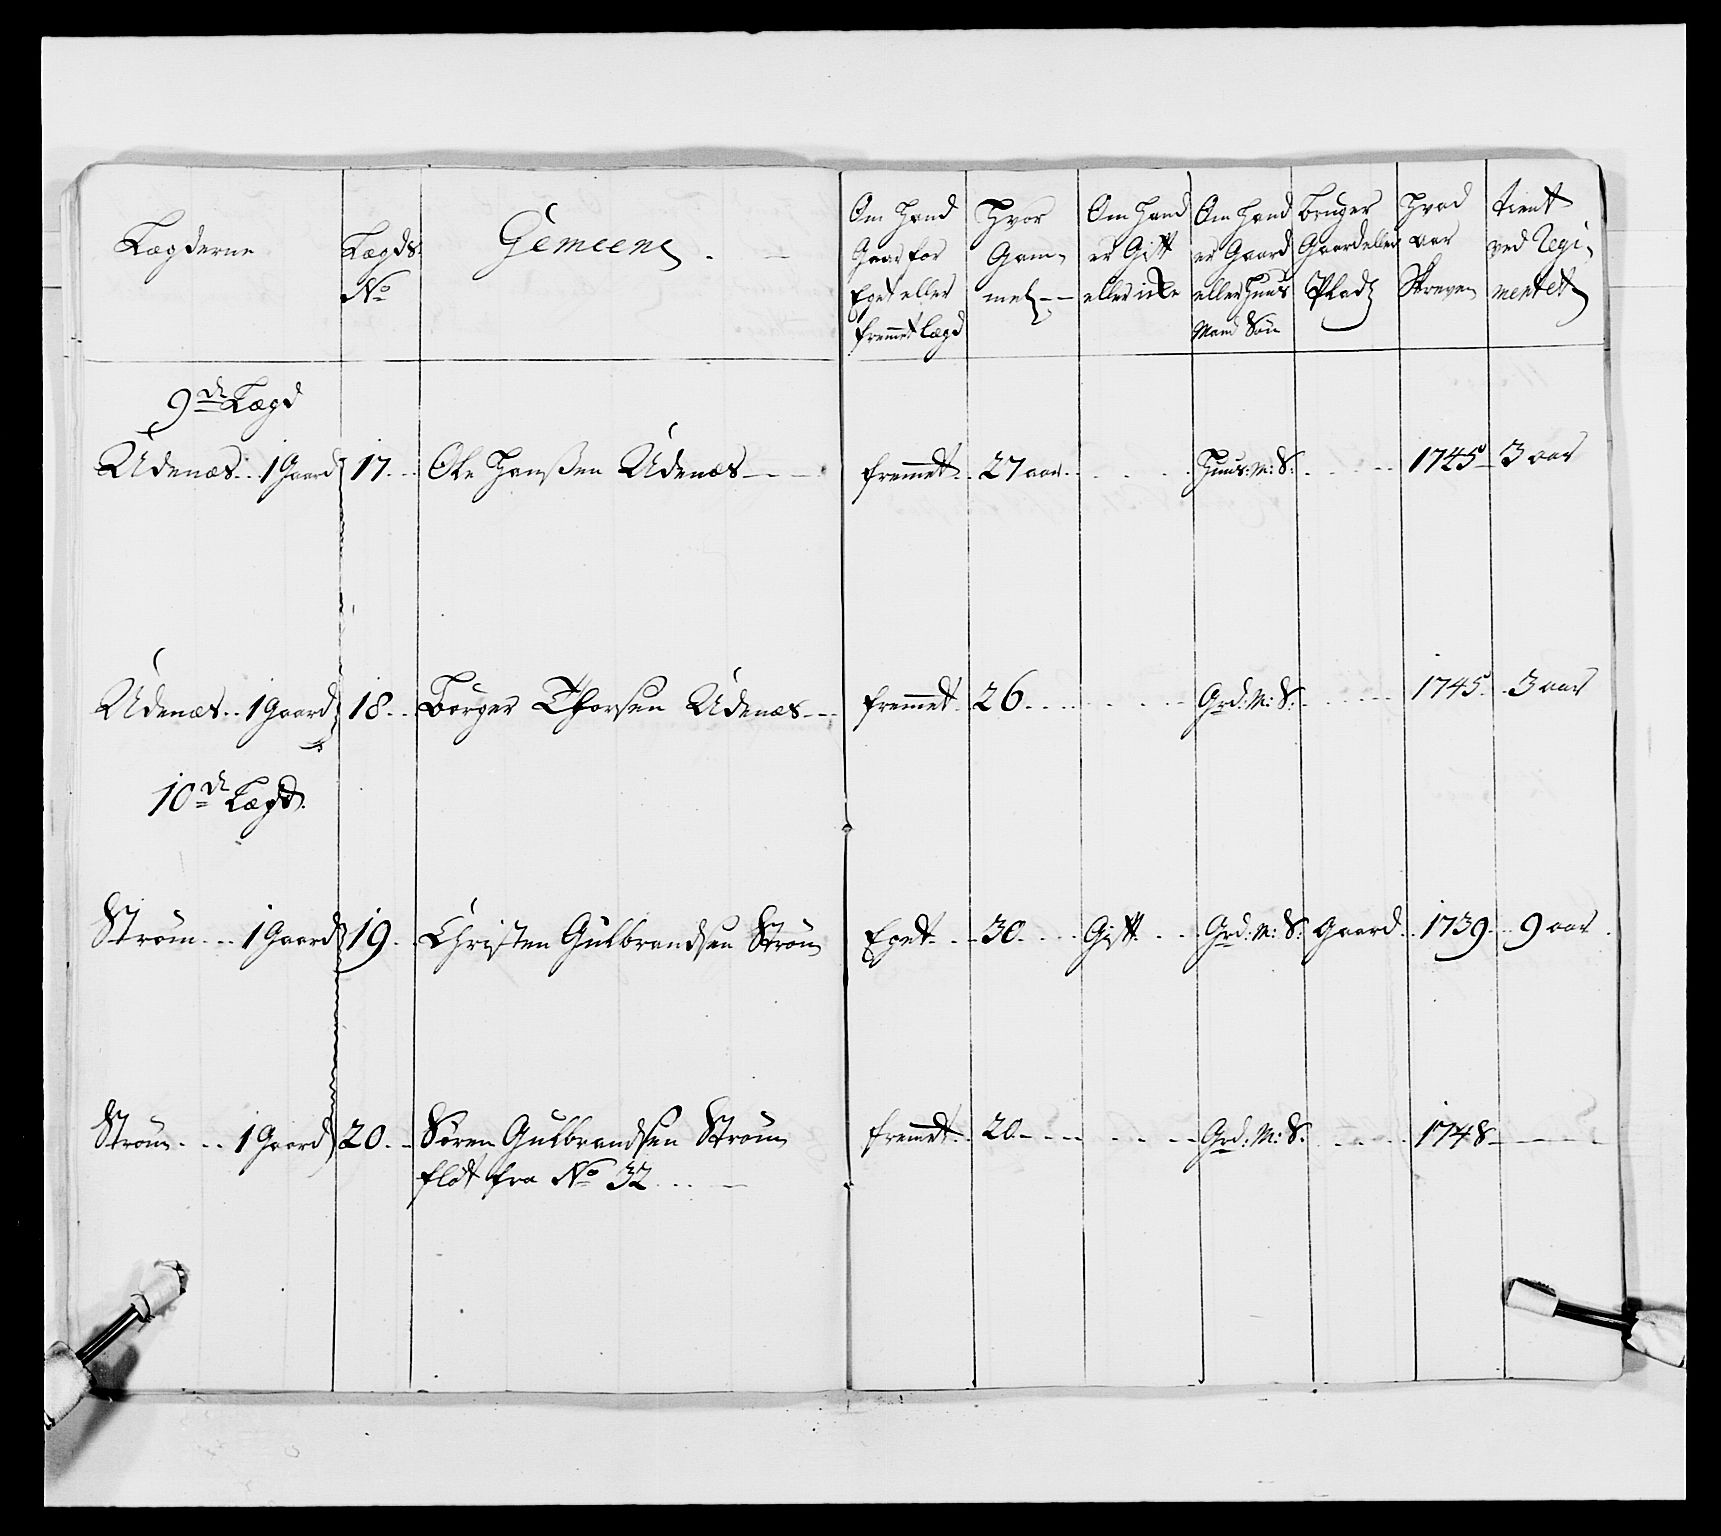 Lægderne
Lægds
No
Gemeene
Om Hand
Gaar for
Eget eller
fremet Lægd
Hvor
Gam-
mel
Om Hand
er Gift
eller icke
Om Hand
er Gaard
eller Huus
Mand Søn
Bruger
Gaard eller
Plads
Hvad
aar
Skreven
tient
ved Regi-
mentet
9de Lægd
Udenæs 1 Gaard 17 Ole Hansen Udenæs fremmet 27 aar Huus: M: S: 1745 3 aar
Udenæs 1 Gaard 18 Børger Thorsen Udenæs fremmet 26 Grd: M: S: 1745 3 aar
10de Lægd
Strøm 1 Gaard 19 Christen Gulbrandsen Strøm Eget 30 Gift Grd: M: S: Gaard 1739 9 aar
Strøm 1 Gaard 20 Søren Gulbrandsen Strøm fremmet 20 Grd: M: S: 1748
flöt fra No 32